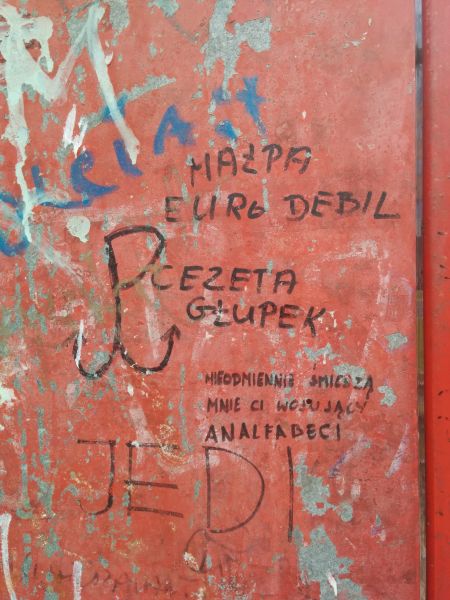 MAŁPA
EURO DEBIL
CEZETA
GŁUPEK
NIEODMIENNIE ŚMIESZĄ
MNIE CI WOJUJĄCY
ANALFABECI
JEDI